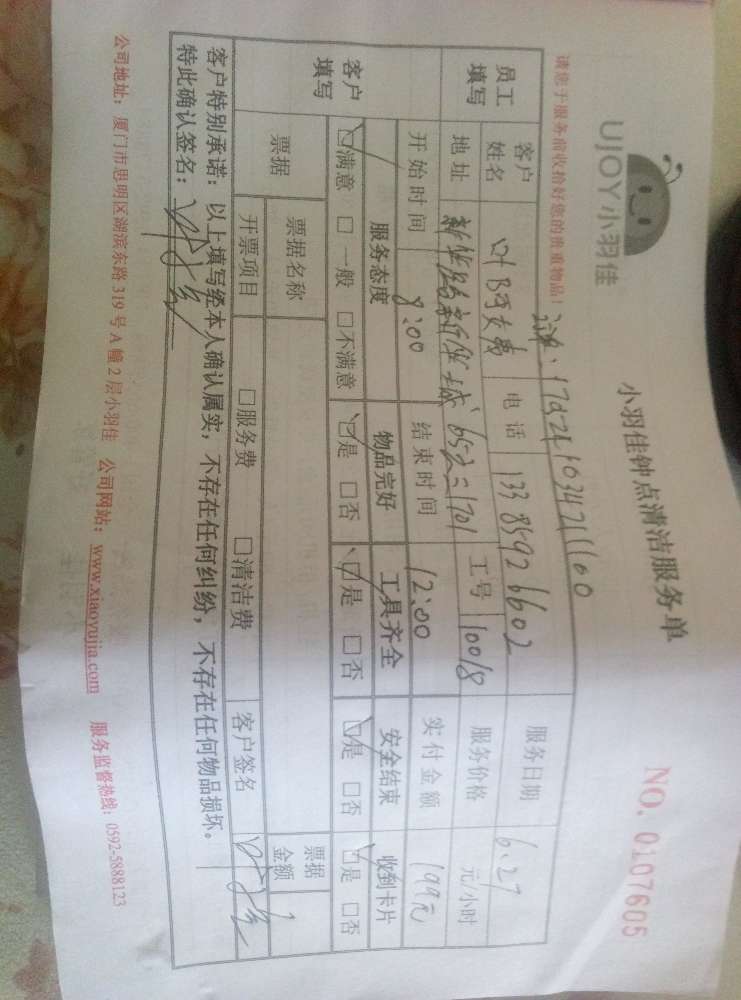 UJOY小羽佳
小羽佳钟点清洁服务单
NO. 0107605
请您于服务前收拾好您的贵重物品!
员工填写
客户姓名 叶 电话 133 8592 6602 服务日期 6.27
地址 1701 工号 10018 服务价格 元/小时
客户填写
开始时间 8:00 结束时间 12:00 实付金额 199元
服务态度 物品完好 工具齐全 安全结束 收到卡片
☑满意 □一般 □不满意 ☑是 □否 ☑是 □否 ☑是 □否 ☑是 □否
票据 票据名称 票据金额
开票项目 □服务费 □清洁费 客户签名
客户特别承诺:以上填写经本人确认属实,不存在任何纠纷,不存在任何物品损坏。
特此确认签名:
公司地址:厦门市思明区湖滨东路 319 号 A 幢 2 层小羽佳 公司网站:www.xiaoyujia.com 服务监督热线:0592-5888123